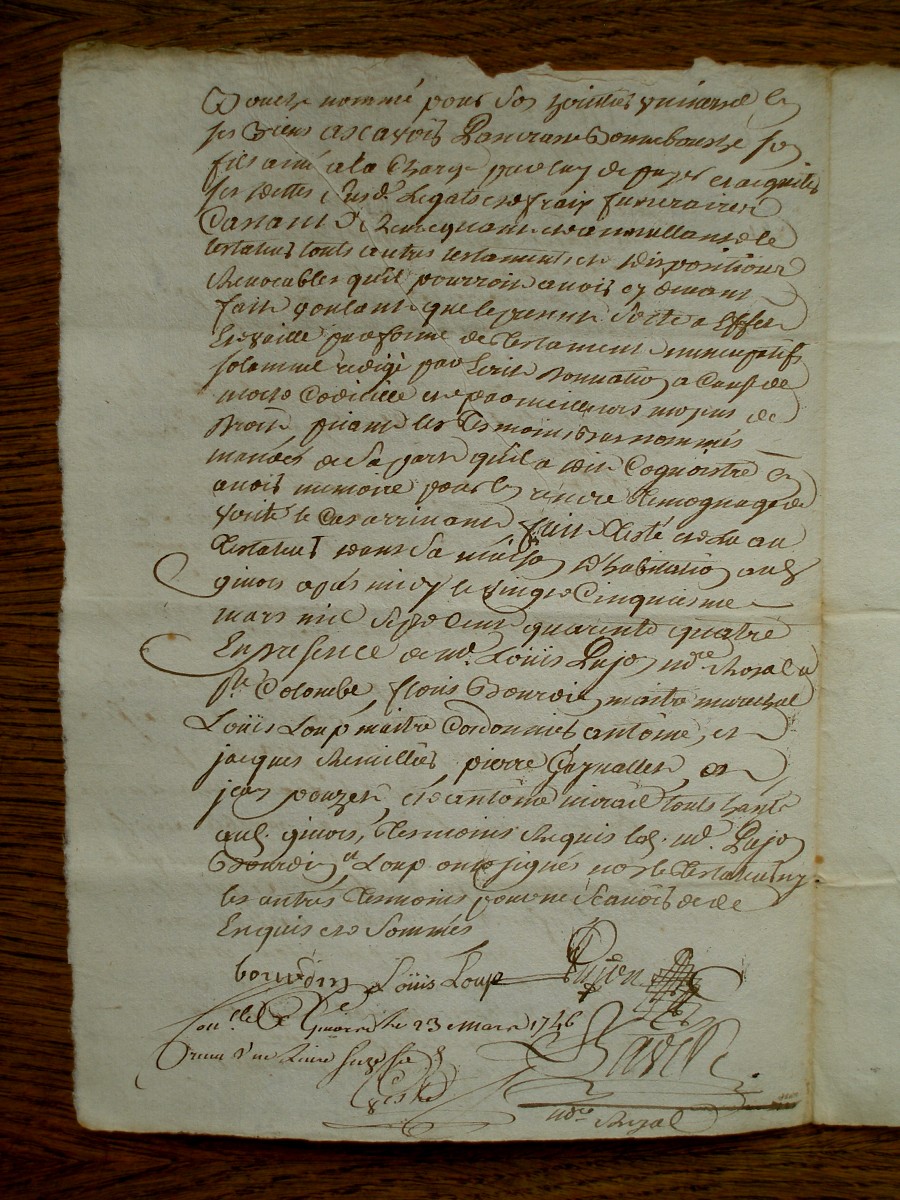 Bouche nommé pour son heritier universel en
ses biens et avoir Bonnebouche son
fils ainé a la charge par luy de payer et acquiter
ses dettes susd. Legats et frais funeraires
Cassant Revocquant et annullant le
testateur touts autres testaments et dispositions
Revocables qu'il pourroit avoir cy devant
fait voulant que le present sorte a Effet
Et vaille par forme de testament nuncupatif
solemne redigé par Ecrit donnation a cause de
mort Codicille et par meilleurs moyens de
Droit priant les tesmoins bas nommés
mandés de sa part qu'il a dit Cognoistre en
avoir memoire pour en rendre temognage de
verité le cas arrivant fait Testé et Lu au
Testateur dans sa maison d'habitation aud.
givors apres midy le vingt Cinquiesme
mars mil sept Cent quarente quatre
En presence de m.e Louis Pujo n.re Royal a
S.te Colombe floris Bourdin maitre marechal
Loüis Loup maitre Cordonnier, antoine, et
jacques Remillier pierre et
jean pouzet, et antoine touts habit.
aud. givors, tesmoins Requis led. m.e Pujo
Bourdin et Loup ont signés non le Testateur ny
les autres tesmoins pour ne sçavoir de ce
Enquis et sommés
bourdin Loüis Loup Pujo
Con.llé a Givors le 23 mars 1746
Receu d'une Livre
n.re Royal